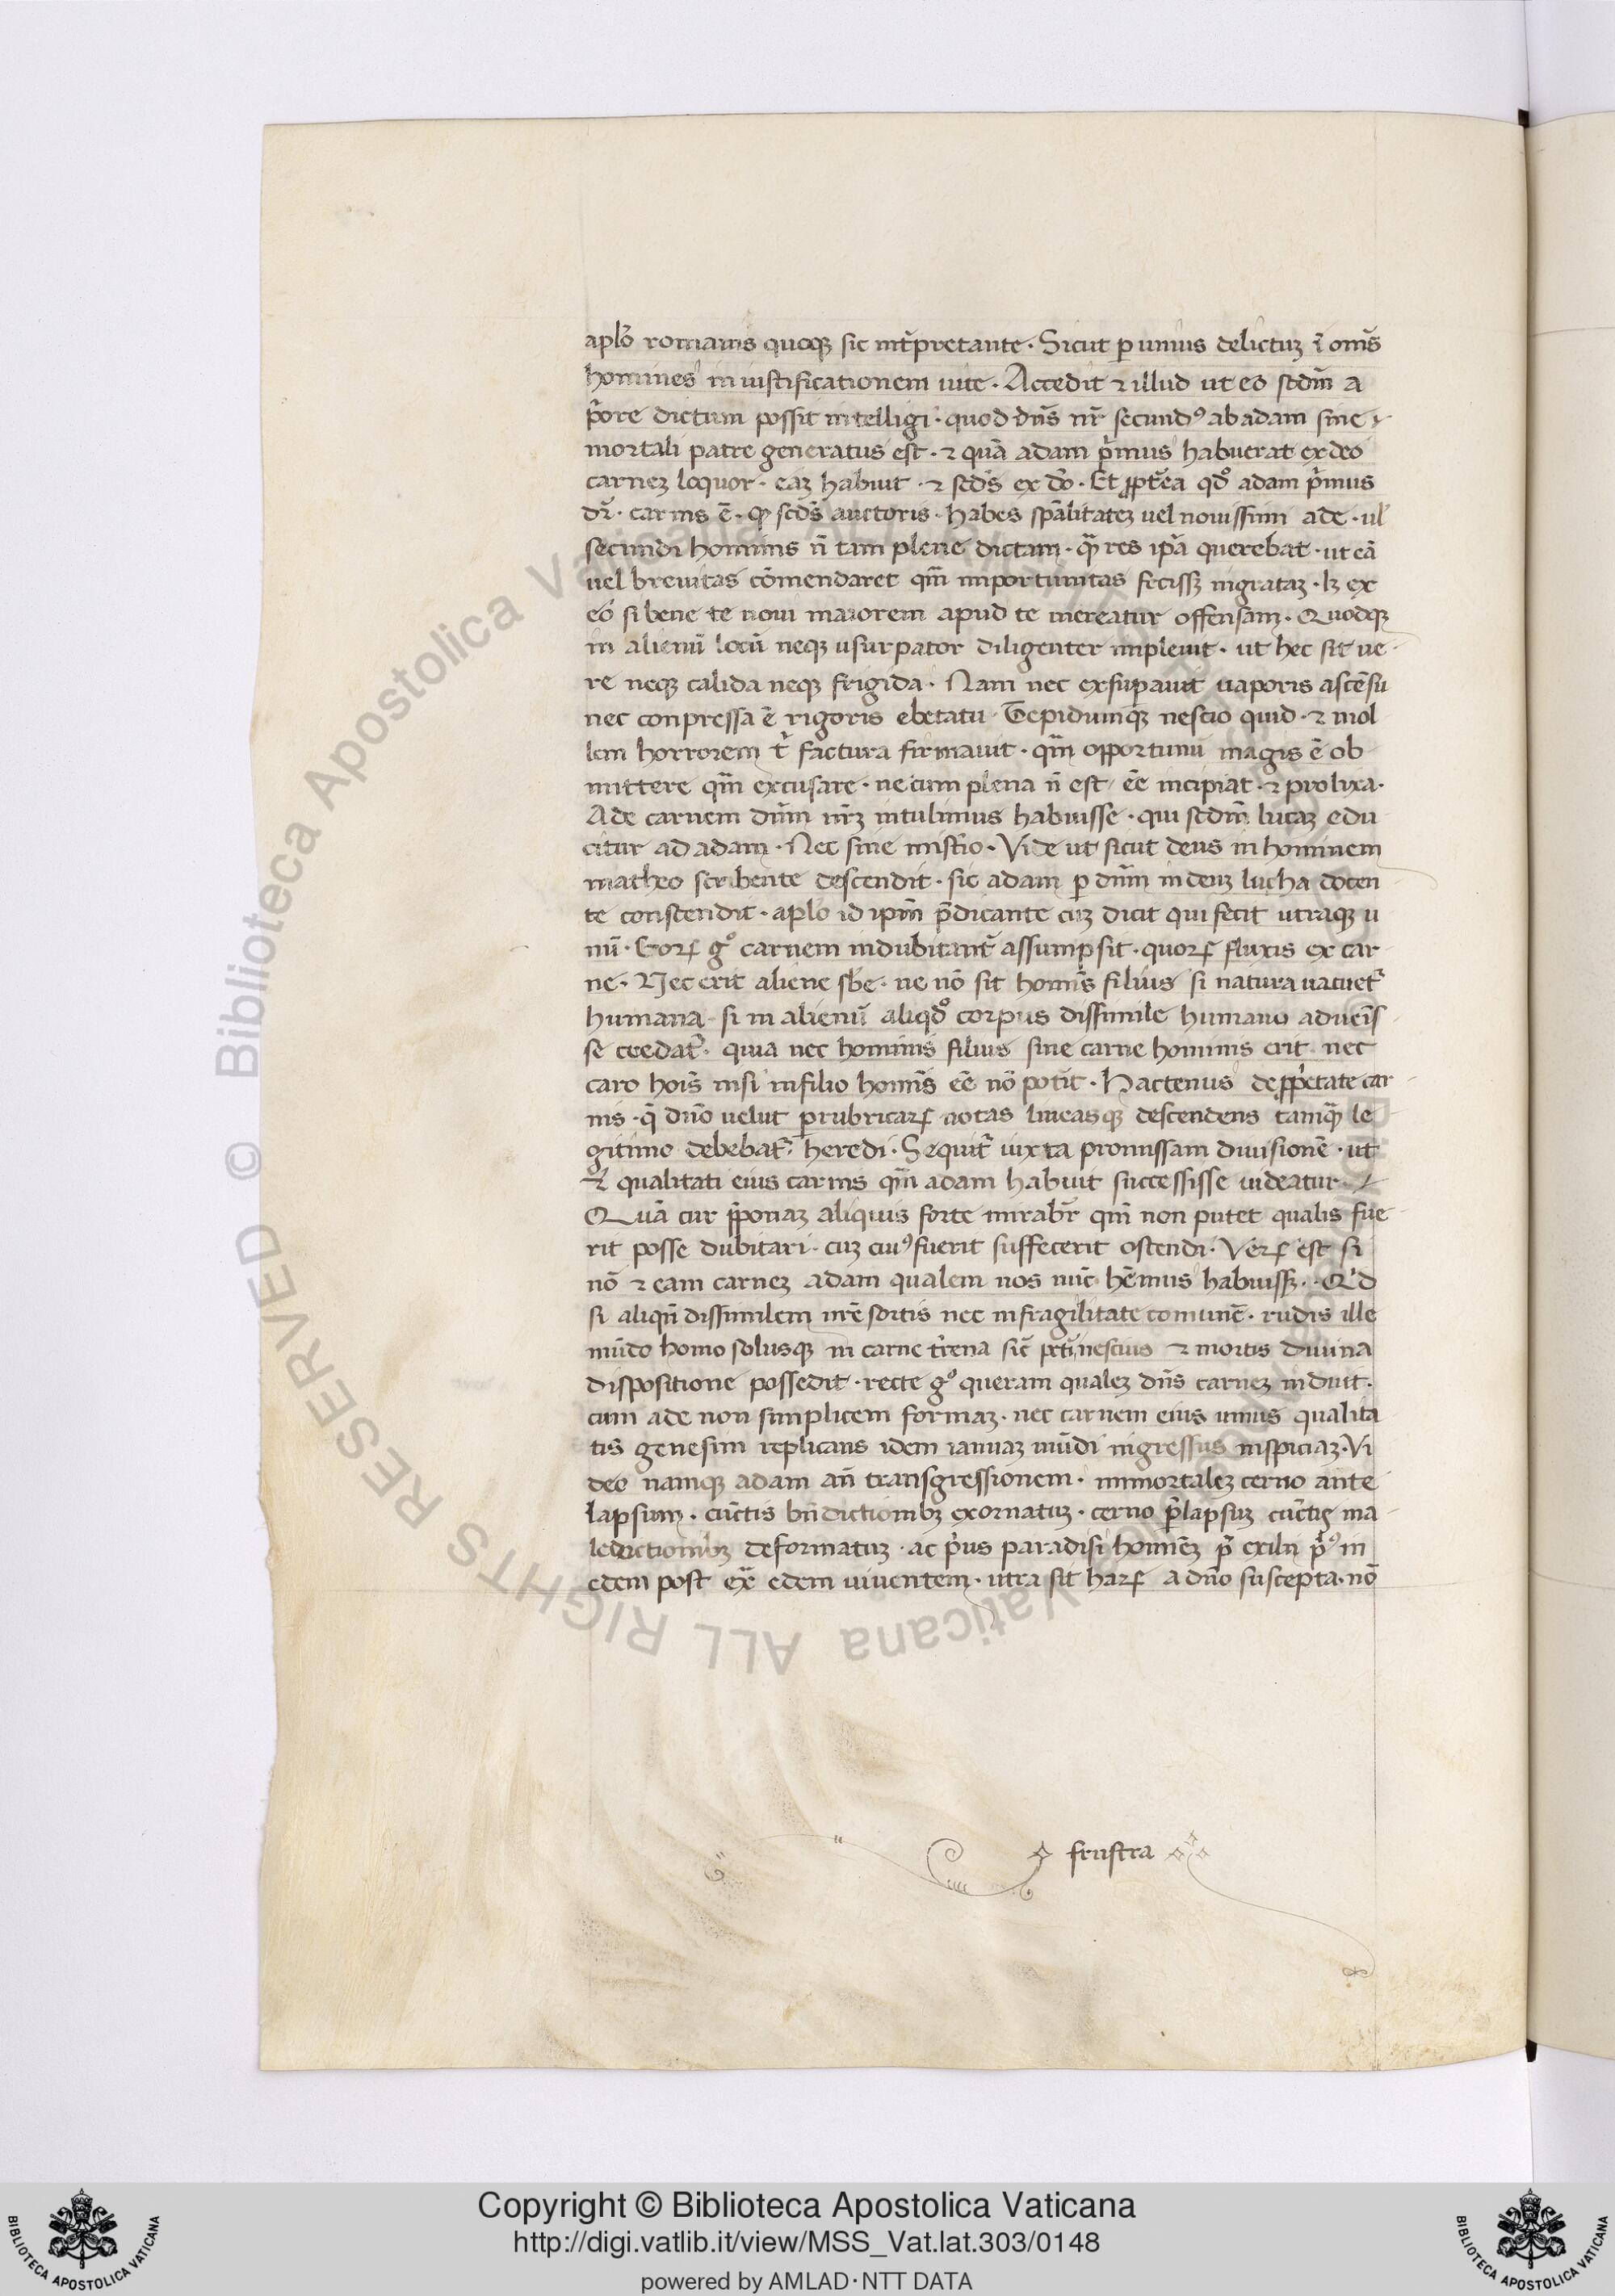 aplo romanis quoqꝫ sic int̃pretante · Sicut ꝑ unius delictuꝫ ĩ oms̃
homines in iustificationem uite · Accedit ⁊ illud ut eo scdm̃ a
p̃ore dictum possit intelligi · quod dñs nr̃ secundꝰ ab adam sine
mortali patre generatus est · ⁊ quã adam p̃mus habuerat ex deo
carneꝫ loquor · eaꝫ habuit · ⁊ scds̃ ex dõ · Et ꝓpt̃ea qđ adam p̃mus
dr̃ · carnis ẽ · scds̃ auctoris · habes spãlitateꝫ uel nouissimi ade · ul̃
secundi hominis ñ tam plene dictam · res ip̃a querebat · ut eã
uel breuitas cõmendaret qm̃ importunitas fecissꝫ ingrataꝫ · lꝫ ex
eo si bene te noui maiorem apud te mereatur offensam · Quodqꝫ
in alienũ locũ neqꝫ usurpator diligenter impleuit · ut hec sit ue
re neqꝫ calida neqꝫ frigida · Nam nec exsuꝑauit uaporis ascẽsu
nec conpressa ẽ rigoris ebetatu · Tepidumqꝫ nescio quid · ⁊ mol
lem horrorem t̃ factura firmauit · qm̃ opportunũ magis ẽ ob
mittere qm̃ excusare · ne cum plena ñ est ẽe incipiat · ⁊ prolixa ·
Ade carnem dnm̃ nr̃ꝫ intulimus habuisse · qui scdm̃ lucaꝫ edu
citur ad adam · Nec sine misterio · Vide ut sicut deus in hominem
matheo scribente descendit · sic adam ꝑ dnm̃ in deuꝫ lucha docen
te conscendit · aplo id ipm̃ p̃dicante cuꝫ dicit qui fecit utraqꝫ u
nũ · Eoꝝ gͦ carnem indubitant̃ assumpsit · quoꝝ fluxis ex car
ne · Nec erit aliene sb̃e · ne nõ sit homĩs filius si natura uacuet̃
humana si in alienũ aliqđ corpus dissimile humano aduenis
se credat̃ · quia nec hominis filius sine carne hominis erit nec
caro hoĩs nisi in filio homĩs ẽe nõ potit · Hactenus de ꝓp̃etate car
nis · q̃ dño uelut ꝑ rubricaꝝ notas lineasqꝫ descendens tamq̃ le
gitimo debebat̃ heredi · Sequit̃ iuxta promissam diuisionẽ · ut
⁊ qualitati eius carnis qm̃ adam habuit successisse uideatur ·
Quã cur p̃ponaꝫ aliquis forte mirabr̃ qm̃ non putet qualis fue
rit posse dubitari · cuꝫ cuiꝰ fuerit suffecerit ostendi · Veꝝ est si
nõ ⁊ eam carneꝫ adam qualem nos nũc hẽmus habuissꝫ · Qd
si aliqñ dissimilem nrẽ sortis nec in fragilitate comunẽ · rudis ille
mũdo homo solusqꝫ in carne t̃rena sic̃ nescius ⁊ mortis diuina
dispositione possedit · recte gͦ queram qualeꝫ dñs carneꝫ induit ·
cum ade non simplicem formaꝫ · nec carnem eius unius qualita
tis genesim replicans idem ianuaꝫ mũdi ingressus inspiciaꝫ · Vi
deo namqꝫ adam añ transgressionem · immortaleꝫ cerno ante
lapsum · cũctis bñdictionibꝫ exornatuꝫ · cerno p̃ lapsuꝫ cũctis ma
ledictionibꝫ deformatuꝫ · ac p̃us paradisi hominẽꝫ p̃ exilii in
edem post ex̃ edem uiuentem · utra sit haꝝ a dño suscepta · nõ
frustra
Copyright © Biblioteca Apostolica Vaticana
http://digi.vatlib.it/view/MSS_Vat.lat.303/0148
powered by AMLAD·NTT DATA
© Biblioteca Apostolica Vaticana ALL RIGHTS RESERVED
BIBLIOTECA APOSTOLICA VATICANA
BIBLIOTECA APOSTOLICA VATICANA